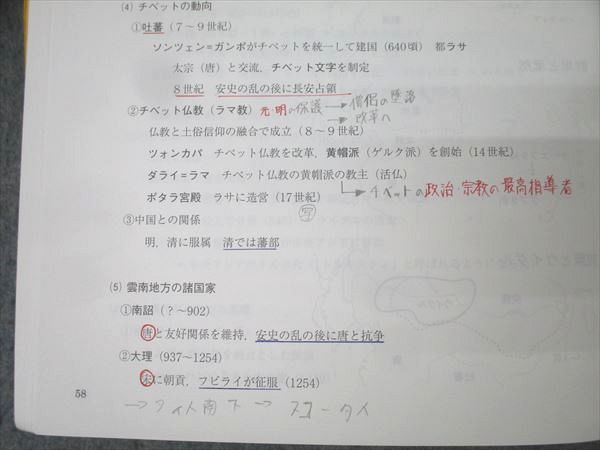 (4) チベットの動向
①吐蕃（７～９世紀）
ソンツェン＝ガンポがチベットを統一して建国（640頃） 都ラサ
太宗（唐）と交流，チベット文字を制定
８世紀 安史の乱の後に長安占領
②チベット仏教（ラマ教） 元・明の保護→僧侶の堕落
→改革へ
仏教と土俗信仰の融合で成立（８～９世紀）
ツォンカパ チベット仏教を改革，黄帽派（ゲルク派）を創始（14世紀）
ダライ＝ラマ チベット仏教の黄帽派の教主（活仏）
→チベットの政治・宗教の最高指導者
ポタラ宮殿 ラサに造営（17世紀）
写
③中国との関係
明，清に服属 清では藩部
(5) 雲南地方の諸国家
①南詔（？～902）
唐と友好関係を維持，安史の乱の後に唐と抗争
②大理（937～1254）
宋に朝貢，フビライが征服（1254）
→タイ人南下→スコータイ
58